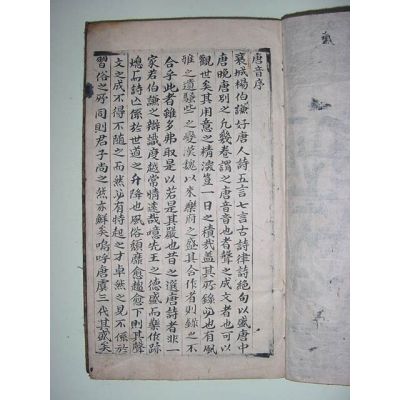 唐音序
襄城楊伯謙好唐人詩五言七言古詩律詩絕句以盛唐中
唐晚唐別之凡幾卷謂之唐音音也者聲之成文者也可以
觀世矣其用意之精深豈一日之積哉蓋其所錄必也有風
雅之遺騷些之變漢魏以來樂府之盛其合作者則錄之不
合乎此者雖多弗取是以若是其嚴也昔之選唐詩者非一
家若伯謙之辯識度越常情遠哉噫先王之德盛而樂作跡
熄而詩亡係於世道之升降也風俗頹靡愈趨愈下則其聲
文之成不得不隨之而然必有特起之才卓然之見不係於
習俗之所同則君子尚之然亦鮮矣嗚呼唐虞三代其盛矣